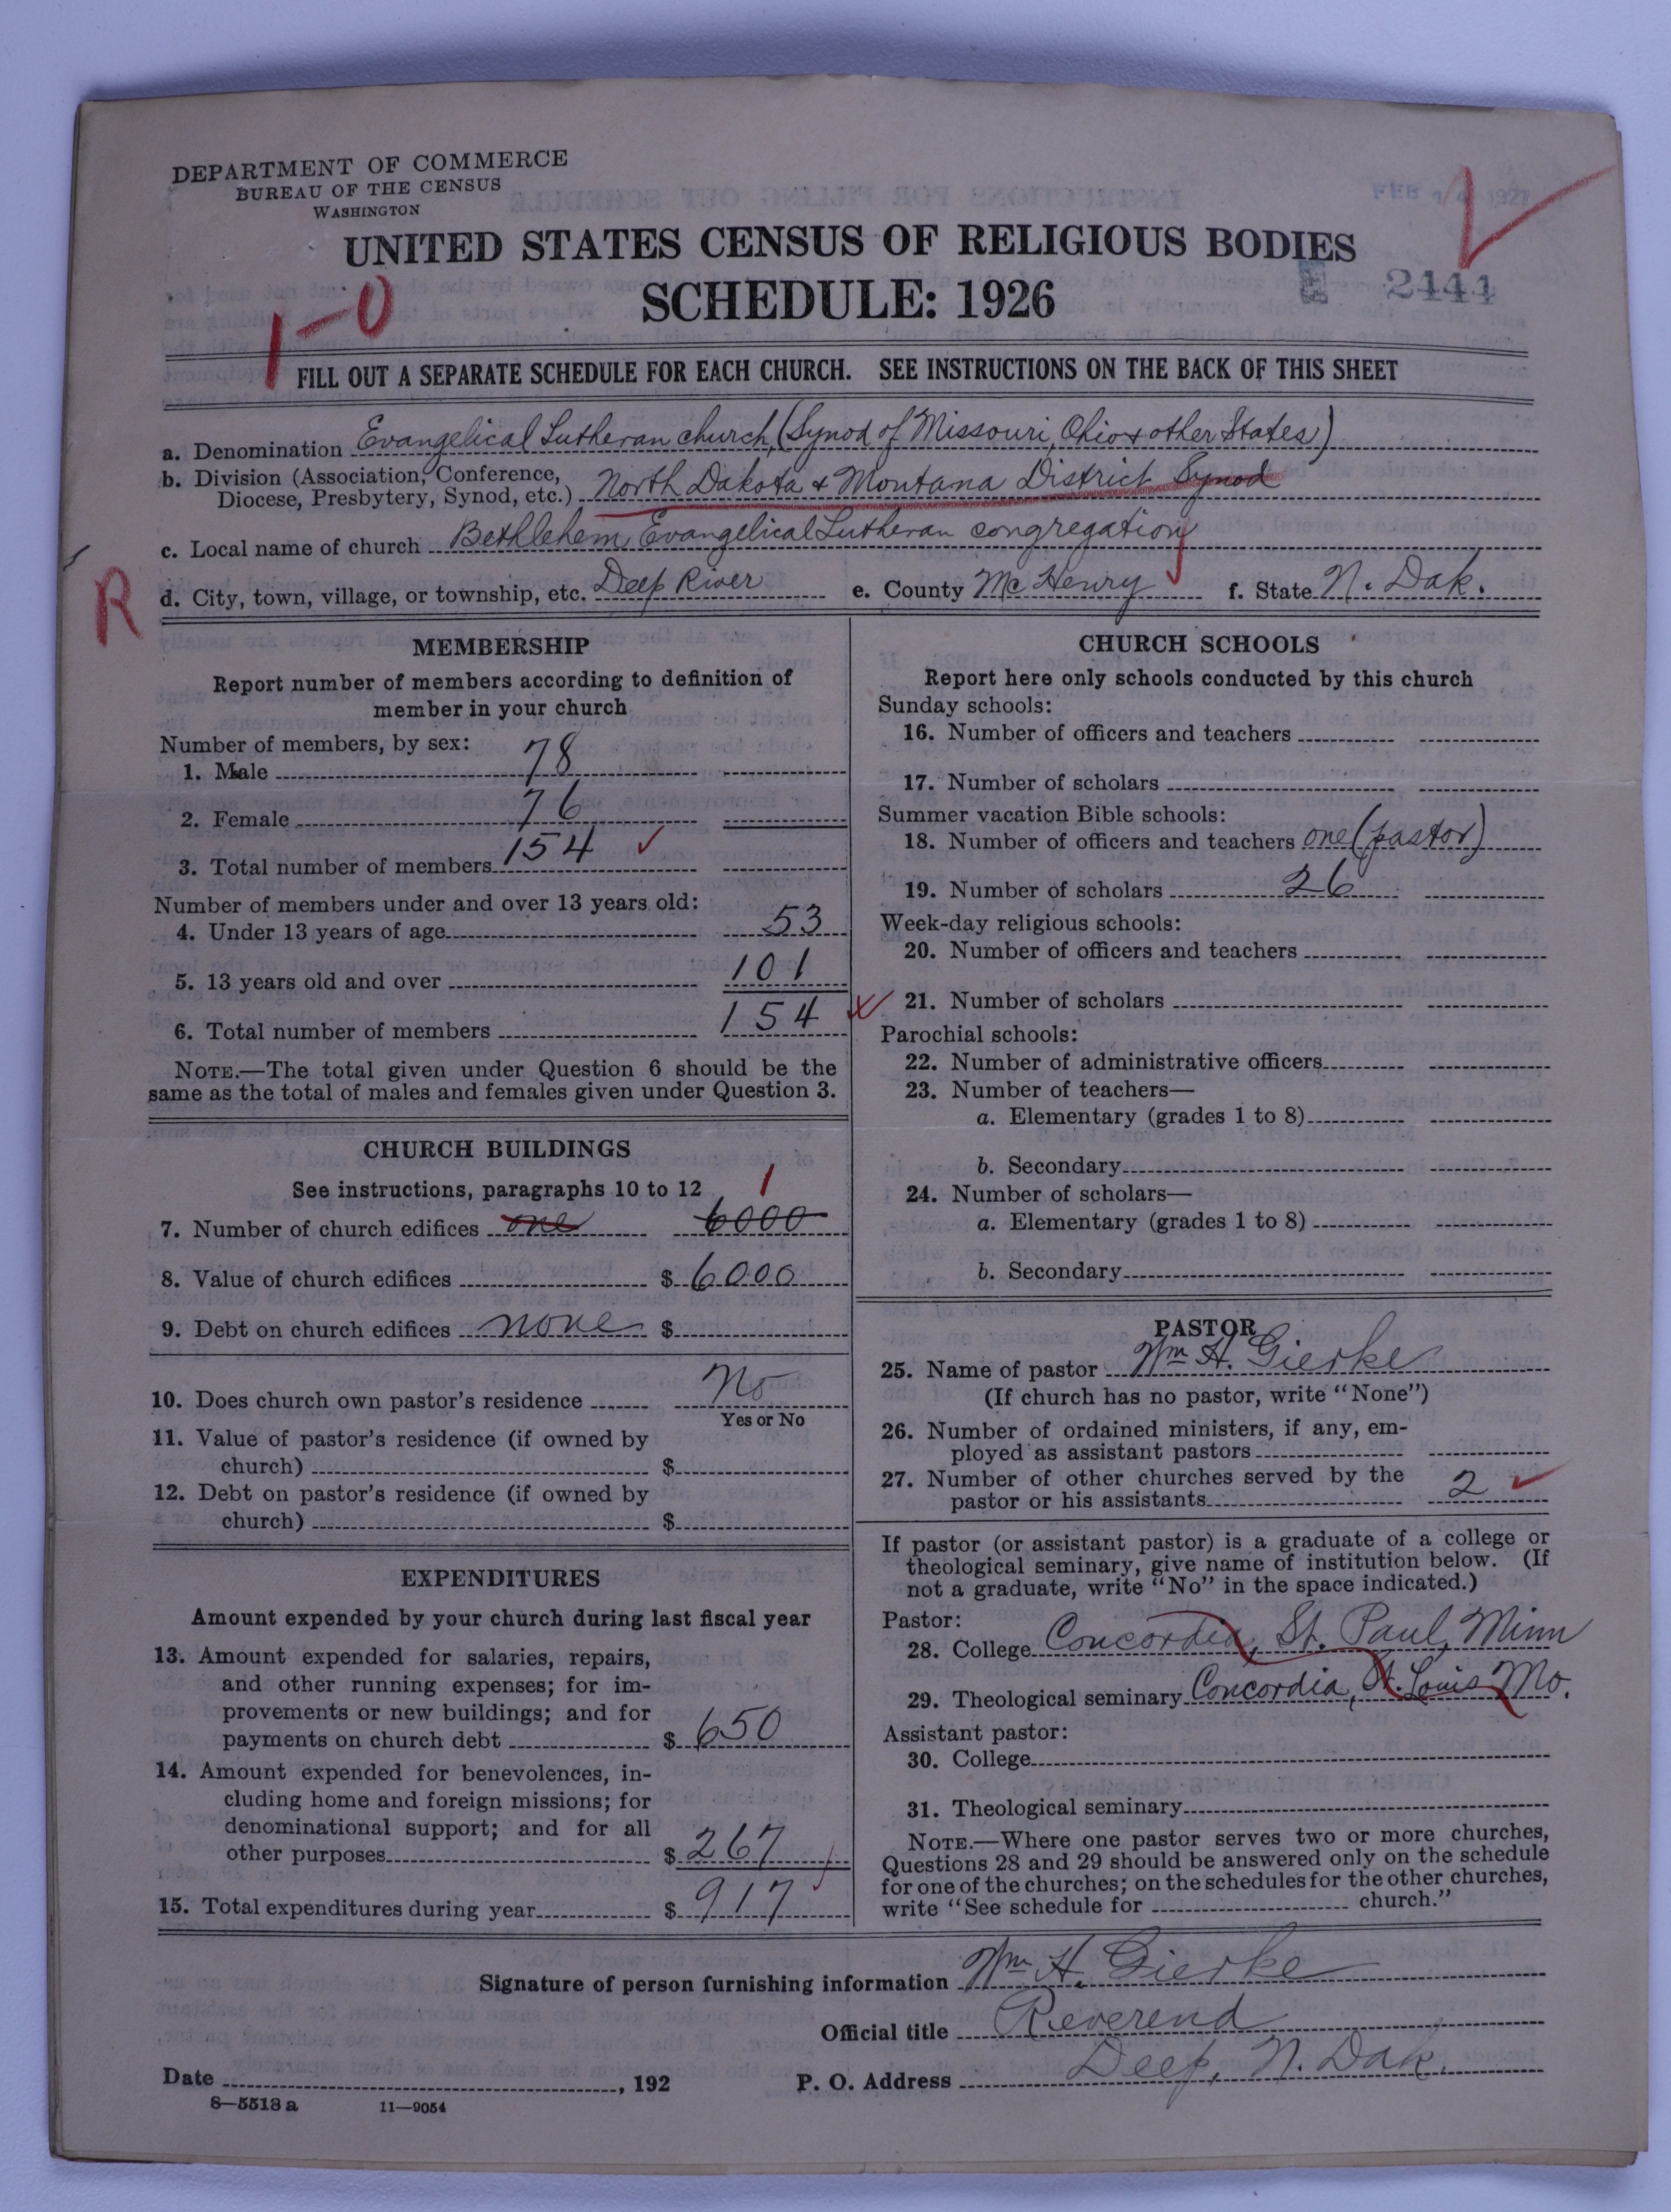 DEPARTMENT OF COMMERCE
BUREAU OF THE CENSUS
WASHINGTON
FEB 1927
UNITED STATES CENSUS OF RELIGIOUS BODIES
SCHEDULE: 1926
2441
1-0
FILL OUT A SEPARATE SCHEDULE FOR EACH CHURCH. SEE INSTRUCTIONS ON THE BACK OF THIS SHEET
a. Denomination Evangelical Lutheran church, (Synod of Missouri, Ohio & other States)
b. Division (Association, Conference,
Diocese, Presbytery, Synod, etc.) North Dakota & Montana District Synod
c. Local name of church Bethlehem Evangelical Lutheran congregation
R
d. City, town, village, or township, etc. Deep River e. County McHenry f. State N. Dak.
MEMBERSHIP
Report number of members according to definition of
member in your church
Number of members, by sex:
1. Male 78
2. Female 76
3. Total number of members 154
Number of members under and over 13 years old:
4. Under 13 years of age 53
5. 13 years old and over 101
6. Total number of members 154
NOTE.—The total given under Question 6 should be the
same as the total of males and females given under Question 3.
CHURCH BUILDINGS
See instructions, paragraphs 10 to 12 1
7. Number of church edifices one 6000
8. Value of church edifices $ 6000
9. Debt on church edifices none $
10. Does church own pastor's residence No
Yes or No
11. Value of pastor's residence (if owned by
church) $
12. Debt on pastor's residence (if owned by
church) $
EXPENDITURES
Amount expended by your church during last fiscal year
13. Amount expended for salaries, repairs,
and other running expenses; for im-
provements or new buildings; and for
payments on church debt $ 650
14. Amount expended for benevolences, in-
cluding home and foreign missions; for
denominational support; and for all
other purposes $ 267
15. Total expenditures during year $ 917
CHURCH SCHOOLS
Report here only schools conducted by this church
Sunday schools:
16. Number of officers and teachers
17. Number of scholars
Summer vacation Bible schools:
18. Number of officers and teachers one (pastor)
19. Number of scholars 26
Week-day religious schools:
20. Number of officers and teachers
21. Number of scholars
Parochial schools:
22. Number of administrative officers
23. Number of teachers—
a. Elementary (grades 1 to 8)
b. Secondary
24. Number of scholars—
a. Elementary (grades 1 to 8)
b. Secondary
PASTOR
25. Name of pastor Wm H. Gierke
(If church has no pastor, write "None")
26. Number of ordained ministers, if any, em-
ployed as assistant pastors
27. Number of other churches served by the
pastor or his assistants 2
If pastor (or assistant pastor) is a graduate of a college or
theological seminary, give name of institution below. (If
not a graduate, write "No" in the space indicated.)
Pastor:
28. College Concordia, St. Paul, Minn
29. Theological seminary Concordia, St. Louis Mo.
Assistant pastor:
30. College
31. Theological seminary
NOTE.—Where one pastor serves two or more churches,
Questions 28 and 29 should be answered only on the schedule
for one of the churches; on the schedules for the other churches,
write "See schedule for church."
Signature of person furnishing information Wm H. Gierke
Official title Reverend
Date , 192 P. O. Address Deep, N. Dak.
8—5518 a 11—9054